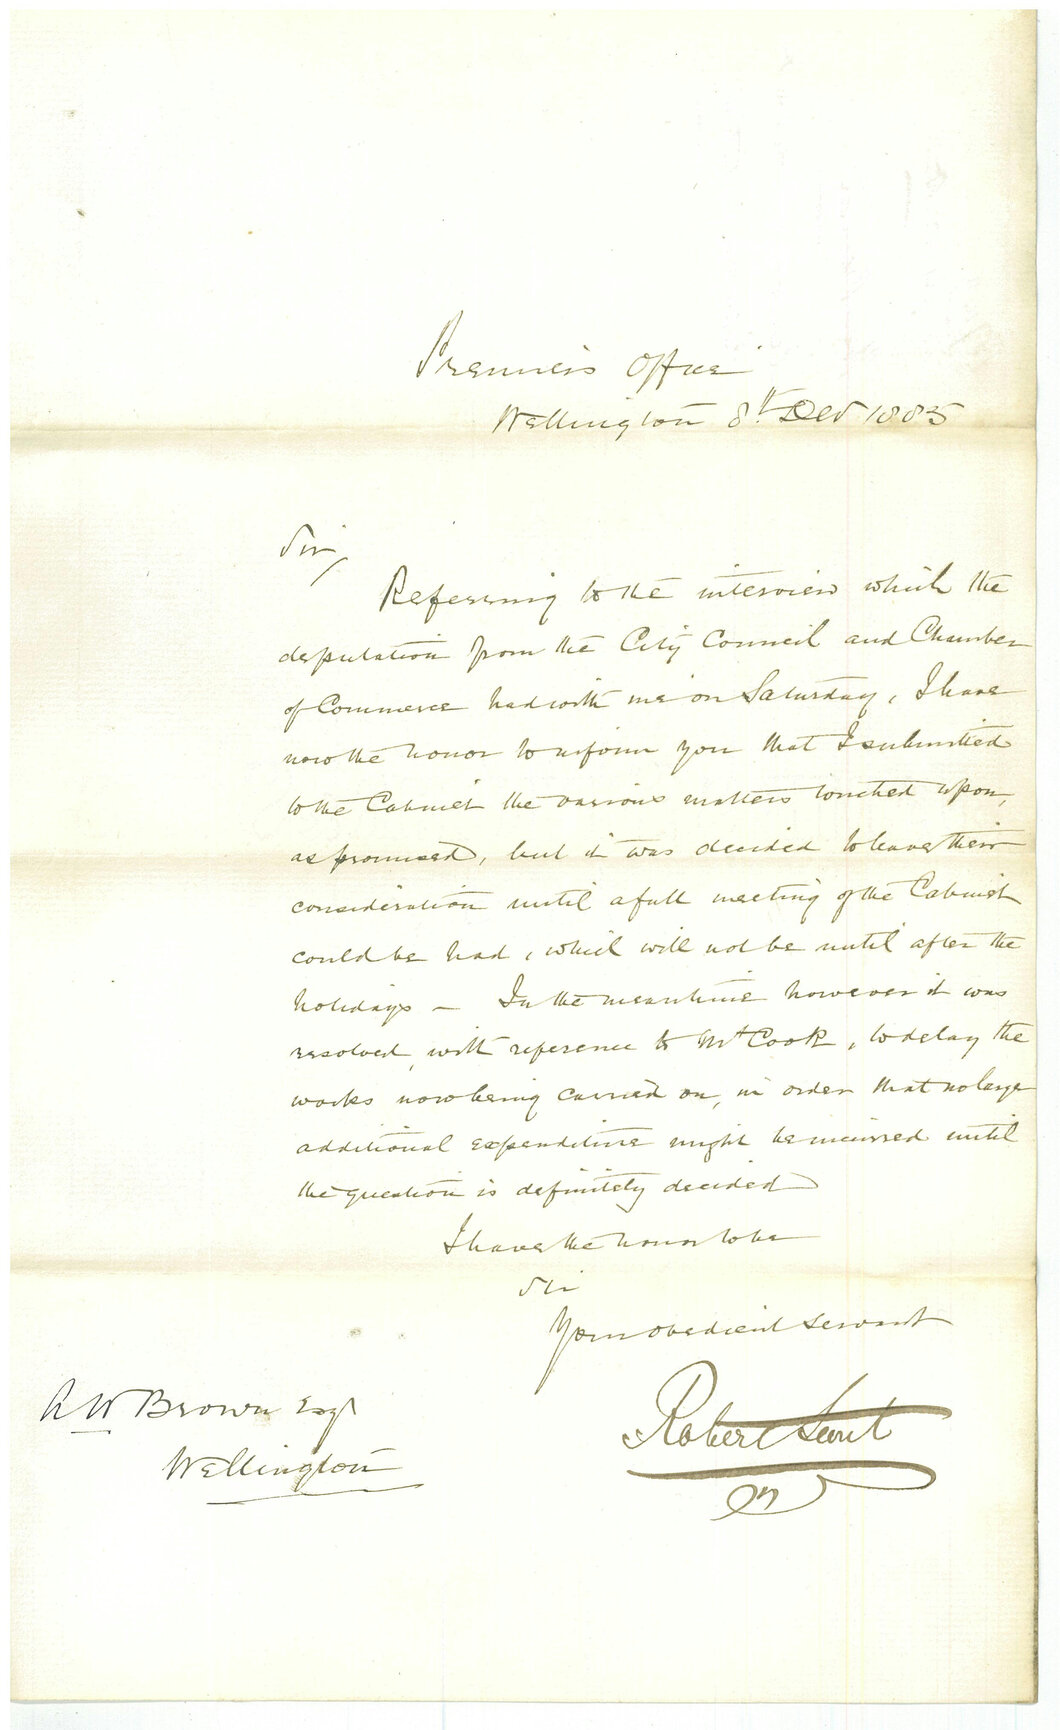 Premier's Office
Wellington 8th Dec 1885
Sir,
Referring to the interview which the
deputation from the City Council and Chamber
of Commerce had with me on Saturday, I have
now the honor to inform you that I submitted
to the Cabinet the various matters touched upon,
as promised, but it was decided to leave their
consideration until a full meeting of the Cabinet
could be had, which will not be until after the
holidays – In the meantime however it was
resolved, with reference to Mt Cook, to delay the
works now being carried on, in order that no large
additional expenditure might be incurred until
the question is definitely decided
I have the honor to be
Sir
Your obedient servant
Robert Stout
A W Brown Esqr
Wellington